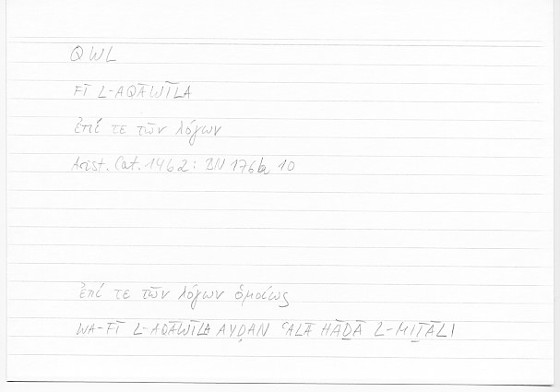 QWL
FĪ L-AQĀWĪLA
ἐπί τε τῶν λόγων
Arist. Cat. 14b2: BN 176b 10
ἐπί τε τῶν λόγων ὁμοίως
WA-FĪ L-AQĀWĪLA AYḌAN ʿALĀ HĀḎĀ L-MIṮĀLI